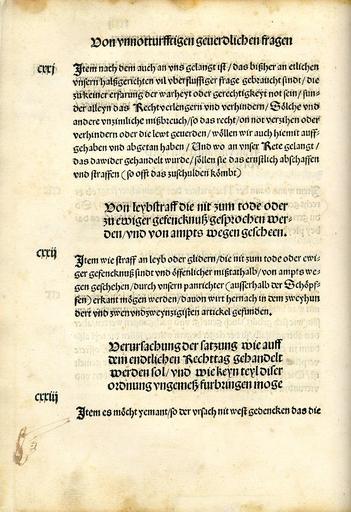 Von vnnotturfftigen geuerdlichen fragen
cxxj
Item nach dem auch an vns gelangt ist / das bißher an etlichen
vnsern halßgerichten vil vberflussiger frage gebraucht sind / die
zu keiner erfarung der warheyt oder gerechtigkeyt not sein / sun-
der alleyn das Recht verlengern vnd verhindern / Sölche vnd
andere vnzimliche mißbreuch / so das recht / on not verzihen oder
verhindern oder die lewt geuerden / wöllen wir auch hiemit auff-
gehaben vnd abgetan haben / Vnd wo an vnser Rete gelangt /
das dawider gehandelt wurde / söllen sie das ernstlich abschaffen
vnd straffen (so offt das zuschulden kömbt)
Von leybstraff die nit zum tode oder
zu ewiger gefencknuß gesprochen wer-
den / vnd von ampts wegen gescheen.
cxxij
Item wie straff an leyb oder glidern / die nit zum tode oder ewi-
ger gefencknuß sindt vnd öffenlicher mißtathalb / von ampts we-
gen geschehen / durch vnsern panrichter (ausserhalb der Schöpf-
fen) erkant mögen werden / dauon wirt hernach in dem zweyhun
dert vnd zwenvndzweynzigisten artickel gefunden.
Verursachung der satzung wie auff
dem endtlichen Rechttag gehandelt
werden sol / vnd wie keyn teyl diser
ordnung vngemeß furbringen moge
cxxiij
Item es möcht yemant / so der vrsach nit west gedencken das die